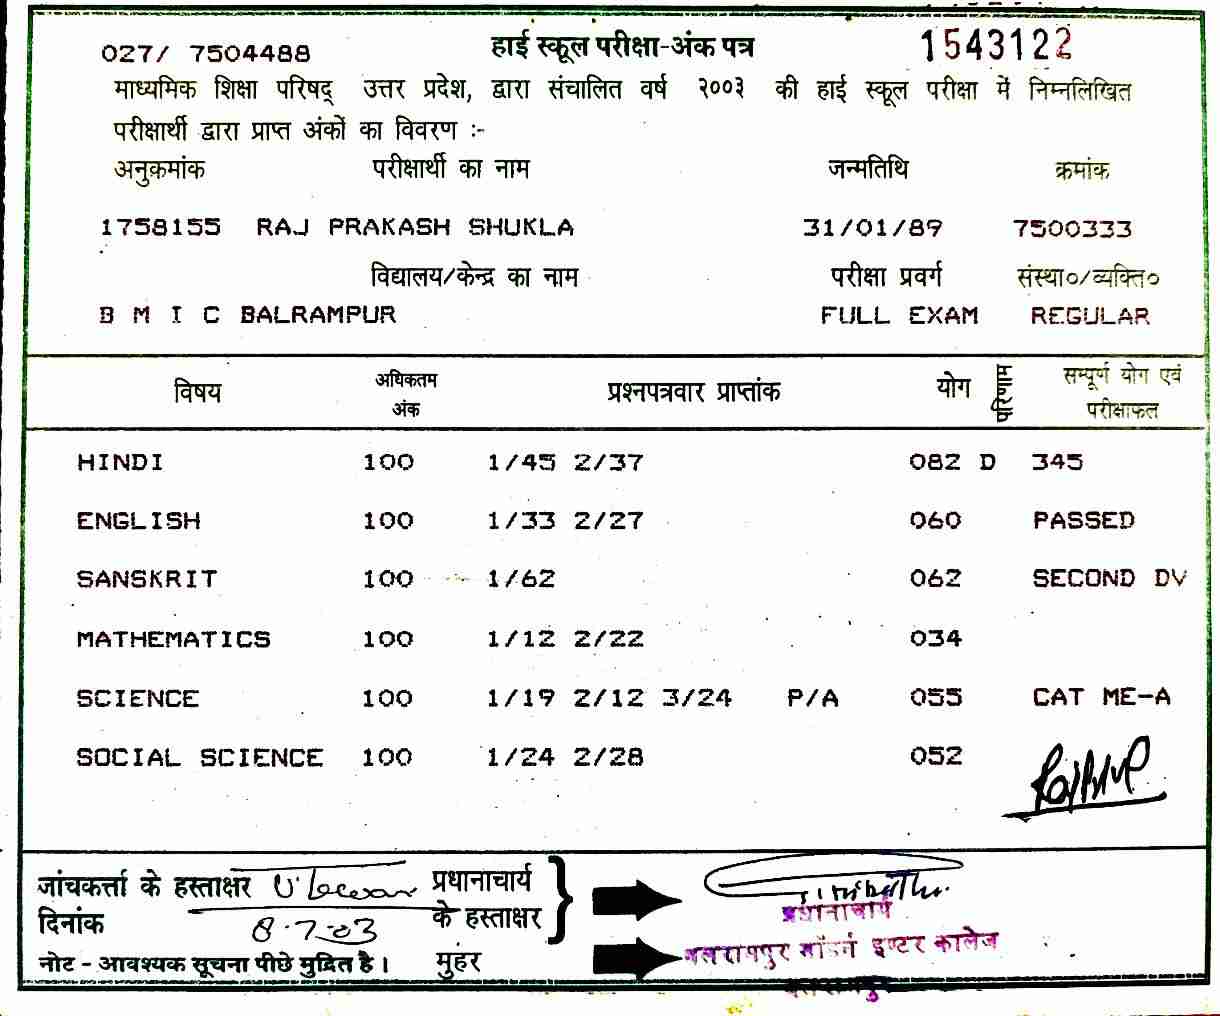 027/ 7504488 हाई स्कूल परीक्षा-अंक पत्र 1543122
माध्यमिक शिक्षा परिषद् उत्तर प्रदेश, द्वारा संचालित वर्ष २००३ की हाई स्कूल परीक्षा में निम्नलिखित
परीक्षार्थी द्वारा प्राप्त अंकों का विवरण :-
अनुक्रमांक परीक्षार्थी का नाम जन्मतिथि क्रमांक
1758155 RAJ PRAKASH SHUKLA 31/01/89 7500333
विद्यालय/केन्द्र का नाम परीक्षा प्रवर्ग संस्था०/व्यक्ति०
B M I C BALRAMPUR FULL EXAM REGULAR
विषय अधिकतम अंक प्रश्नपत्रवार प्राप्तांक योग परिणाम सम्पूर्ण योग एवं परीक्षाफल
HINDI 100 1/45 2/37 082 D 345
ENGLISH 100 1/33 2/27 060 PASSED
SANSKRIT 100 1/62 062 SECOND DV
MATHEMATICS 100 1/12 2/22 034
SCIENCE 100 1/19 2/12 3/24 P/A 055 CAT ME-A
SOCIAL SCIENCE 100 1/24 2/28 052
जांचकर्त्ता के हस्ताक्षर प्रधानाचार्य
दिनांक 8-7-03 के हस्ताक्षर
प्रधानाचार्य
नोट - आवश्यक सूचना पीछे मुद्रित है। मुंहर
बलरामपुर मॉडर्न इण्टर कालेज
बलरामपुर